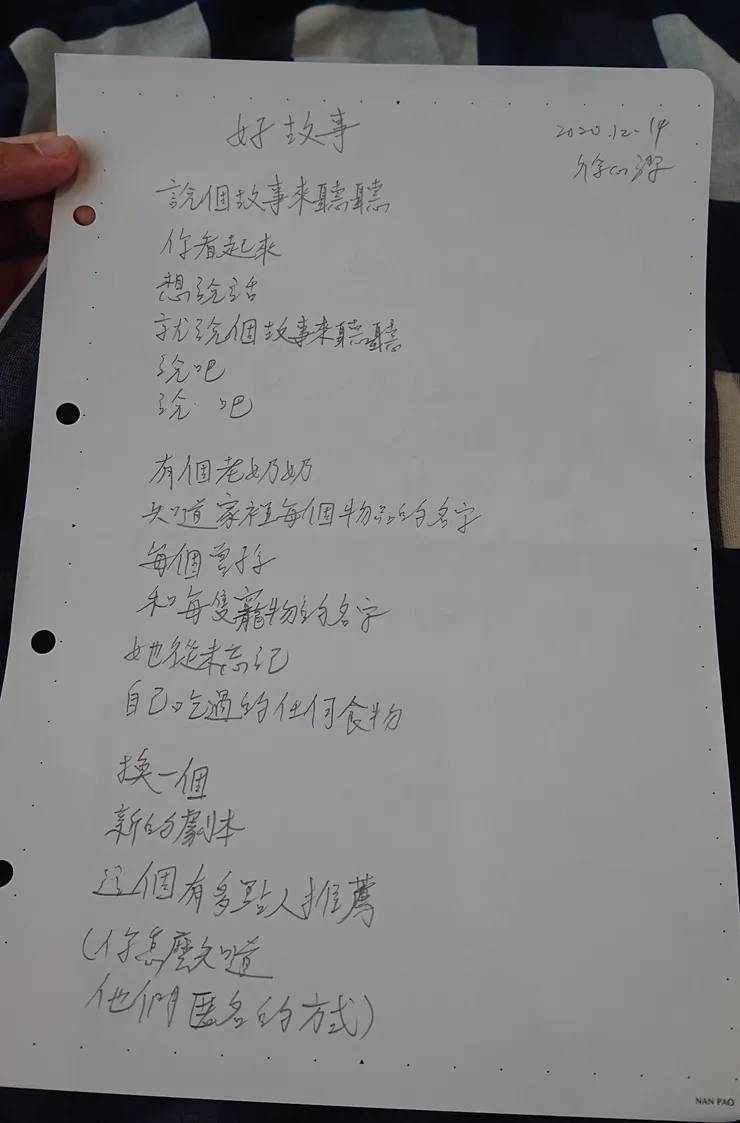 好故事
2020.12-14
說個故事來聽聽
你看起來
想說話
就說個故事來聽聽
說吧
說 吧
有個老奶奶
知道家裡每個物品的名字
每個曾孫
和每隻寵物的名字
她從未忘記
自己吃過的任何食物
換一個
新的劇本
這個有多點人推薦
(你怎麼知道
他們匿名的方式)
NAN PAO